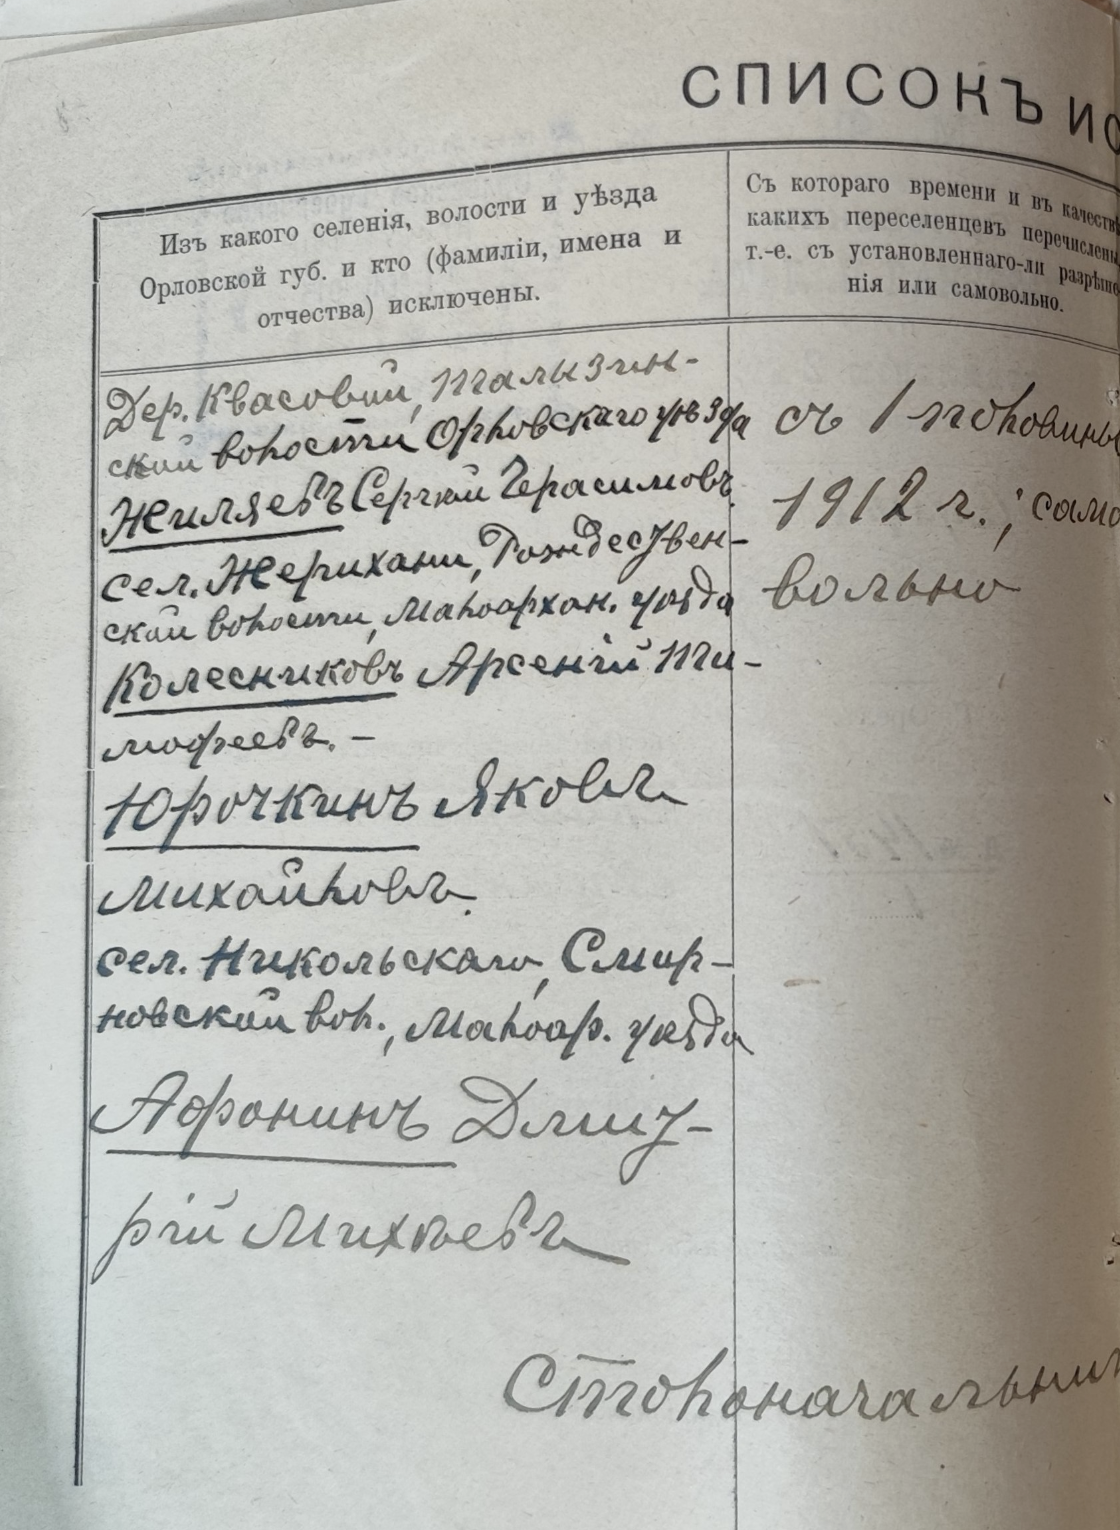 СПИСОКЪ ИС
Изъ какого селенія, волости и уѣзда
Орловской губ. и кто (фамиліи, имена и
отчества) исключены.
Съ котораго времени и въ качествѣ
какихъ переселенцевъ перечислены,
т.-е. съ установленнаго-ли разрѣше-
нія или самовольно.
Дер. Квасовой, Талызин-
ской волости Орловскаго уѣзда
Жиляевъ Сергѣй Герасимовъ.
сел. Жерихани, Рождествен-
ской волости, Малоархан. уѣзда
Колесниковъ Арсеній Ти-
мофеевъ. –
Юрочкинъ Яковъ
Михайловъ.
сел. Никольскаго, Смир-
новской вол., Малоар. уѣзда
Афонинъ Дмит-
рій Михѣевъ
съ 1 половины
1912 г.; само
вольно
Столоначальник